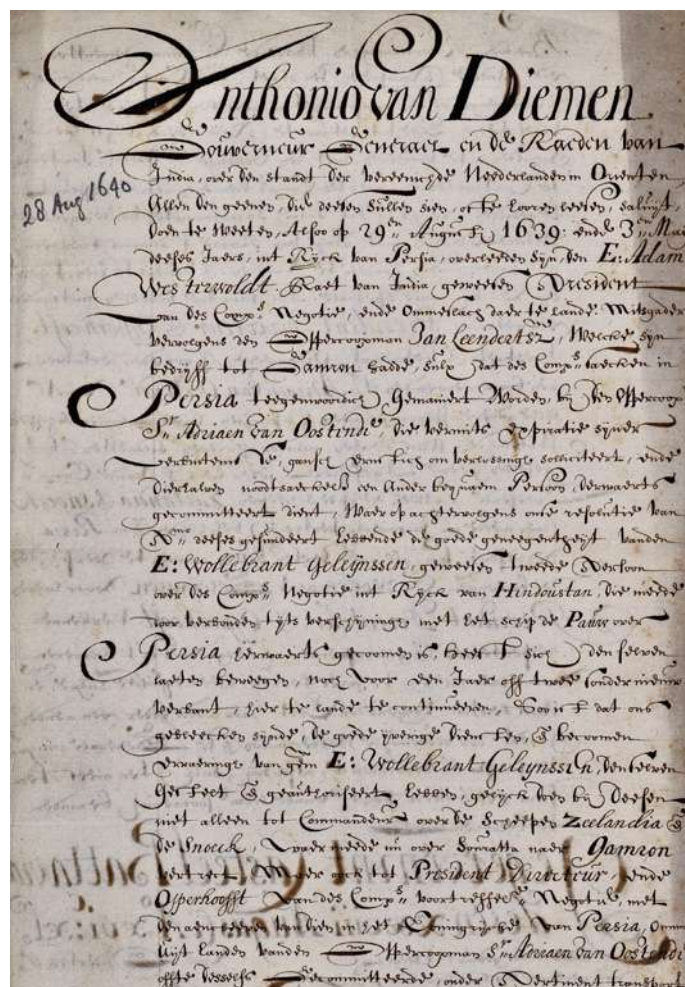 Anthonio van Diemen
Gouverneur Generael en de Raeden van
India, over den standt der vereenichde Nederlanden in Orienten,
28 Aug 1640
Allen den geenen, die deesen sullen sien, ofte hooren leesen, salluijt,
doen te weeten, Alsoo op 29en Augustij 1639: ende 3en Maij
deeses Jaers, int Rijck van Persia, overleeden sijn, den E: Adam
Westerwoldt, Raet van India, geweesen President
van des Comps Negotie, ende Ommeslach daer te lande, Mitsgaders
vervolgens den Oppercoopman Jan Leendertsz, Welcke sijn
bedrijff tot Gamron hadde, sulx dat des Comps saecken in
Persia teegenwoordich Gemainert Worden, bij den Oppercoop
Sr Adriaen van Oostende, die vermits Expiratie sijner
verbintenisse, gansch ernstich om verlossinge solliciteert, ende
dierhalven nootsaeckelijck een Ander bequaem Persoon, derwaerts
gecommitteert dient, Waer op achtervolgens onse resolutie van
deeses gesundeert hebbende de goede geneegentheijt vanden
E: Wollebrant Geleijnssen, geweesen tweede Persoon
over des Comps Negotie int Rijck van Hindoustan, die meede
voor verbonden tijts verschijninge met het schip de Pauw over
Persia herwaerts gecoomen is, heeft sich den selven
laeten beweegen, noch voor een Jaer off twee sonder nieuw
verbant, hier te lande te continueeren, Soo ist dat ons
gebleecken sijnde, de goede ijverige diensten, & becoomen
ervaeringe van gem. E: Wollebrant Geleijnssen, den selven
Gestelt & geauthoriseert hebben, gelijck doen bij deesen
niet alleen tot Commandeur over de Scheepen Zeelandia &
de Snoeck, waer meede nu over Souratta naer Gamron
vertreckt, Maer oock tot President Directeur, ende
Opperhoofft van des Comps voortreffel. Negotie, met
den aencleeven van dien in het Coningrijcke van Persia,
lijst landen vanden Oppercoopman Sr Adriaen van Oostende
offte desselfs Gecommitteerde, onder Pertinent transport